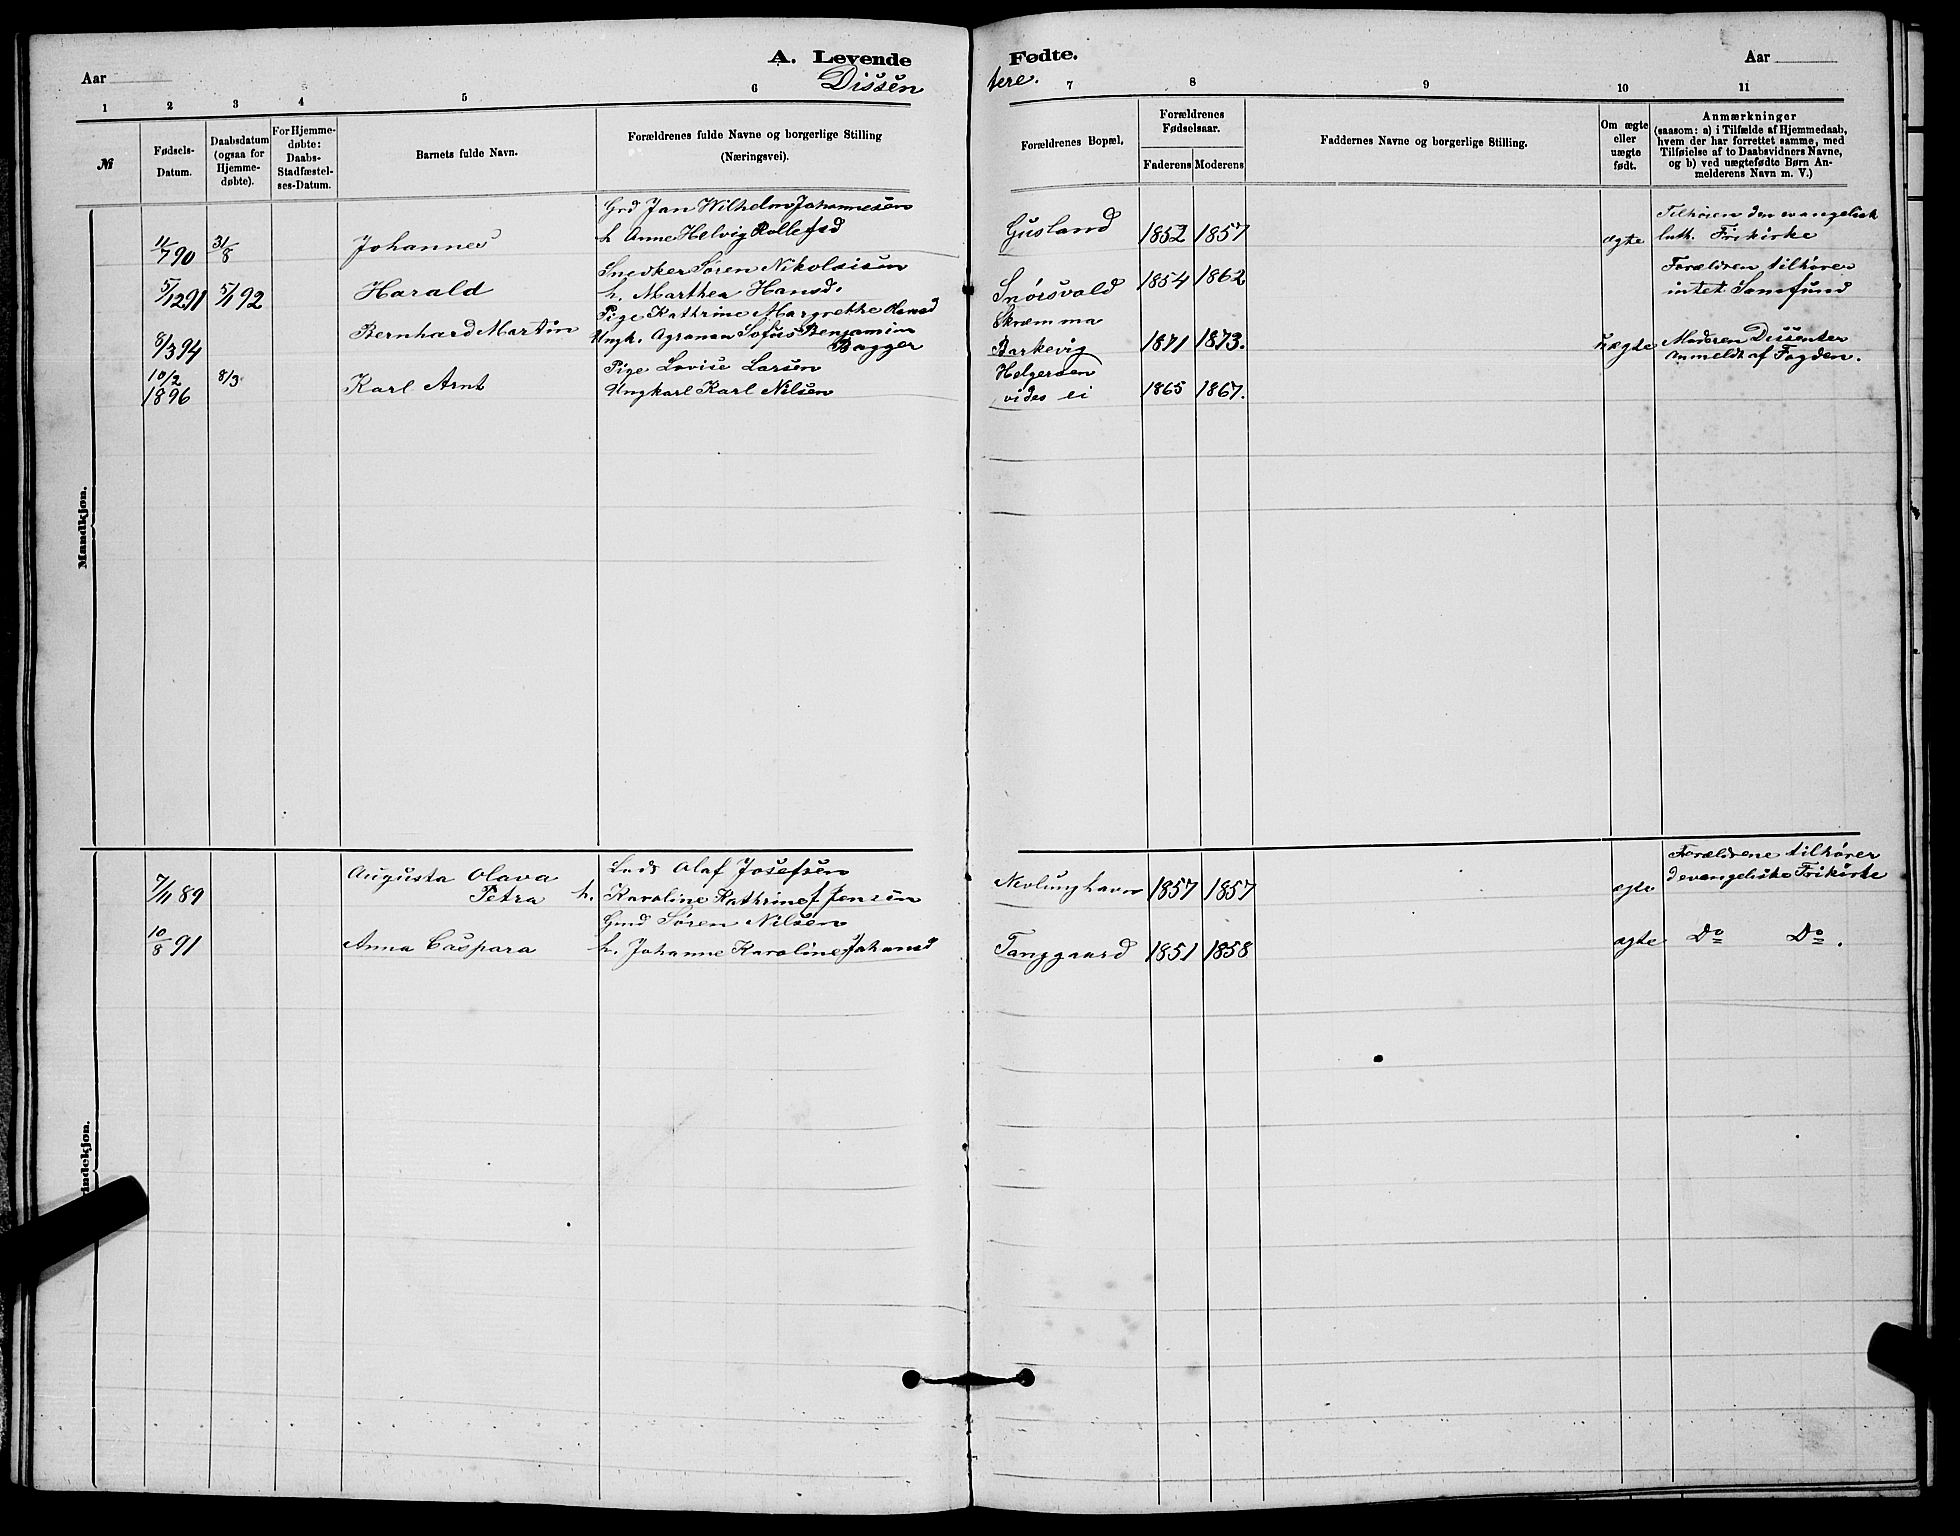 A. Levende
Dissen
Aar
1 2 3 4 5 6
№
Fødsels-
Datum.
Daabsdatum
(ogsaa for
Hjemme-
døbte).
For Hjemme-
døbte:
Daabs-
Stadfæstel-
ses-Datum.
Barnets fulde Navn.
Forældrenes fulde Navne og borgerlige Stilling
(Næringsvei).
Mandkjøn.
Grd Jan Wilhelm Johannesen
11/7 90 31/8 Johannes h. Anne Helvig Rollefsd
Snedker Søren Nikolaisen
5/12 91 5/1 92 Harald h. Marthea Hansd.
Pige Kathrine Margrethe Hansd
8/3 94 Bernhard Martin Ungk. Agronom Sofus Benjamin
Bagger
Pige Lovise Larsen
10/2 8/3 Karl Arnt
1896 Ungkarl Karl Nilsen
Augusta Olava Lods Olaf Josefsen
7/11 89 Petra h. Karoline Kathrine Jensen
Gmd Søren Nilsen
10/8 91 Anna Caspara h. Johanne Karoline Johansd
Fødte.
tere.
Aar
7 8 9 10 11
Forældrenes Bopæl.
Forældrenes
Fødselsaar.
Faderens Moderens
Faddernes Navne og borgerlige Stilling.
Om ægte
eller
uægte
født.
Anmærkninger
(saasom: a) i Tilfælde af Hjemmedaab,
hvem der har forrettet samme, med
Tilføielse af to Daabsvidners Navne,
og b) ved uægtefødte Børn An-
melderens Navn m. V.)
Tilhører den evangelisk
Gusland 1852 1857 ægte luth. Frikirke
Forældren tilhører
Snörsvald 1854 1862 intet Samfund
Skræmma
Barkevig 1871 1873. uægte Moderen Dissenter
Anmeldt af Fogden.
Helgeroen
vides ei 1865 1867.
Forældrene tilhører
Nevlunghavn 1857 1857 ægte d evangeliske Frikirke
Tanggaard 1851 1858 ægte Do Do.